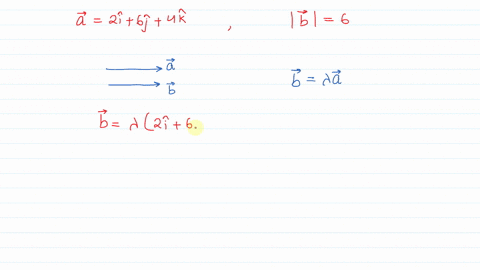 a⃗ = 2î + 6ĵ + 4k̂ , |b⃗| = 6
a⃗
b⃗
b⃗ = λa⃗
b⃗ = λ(2î + 6